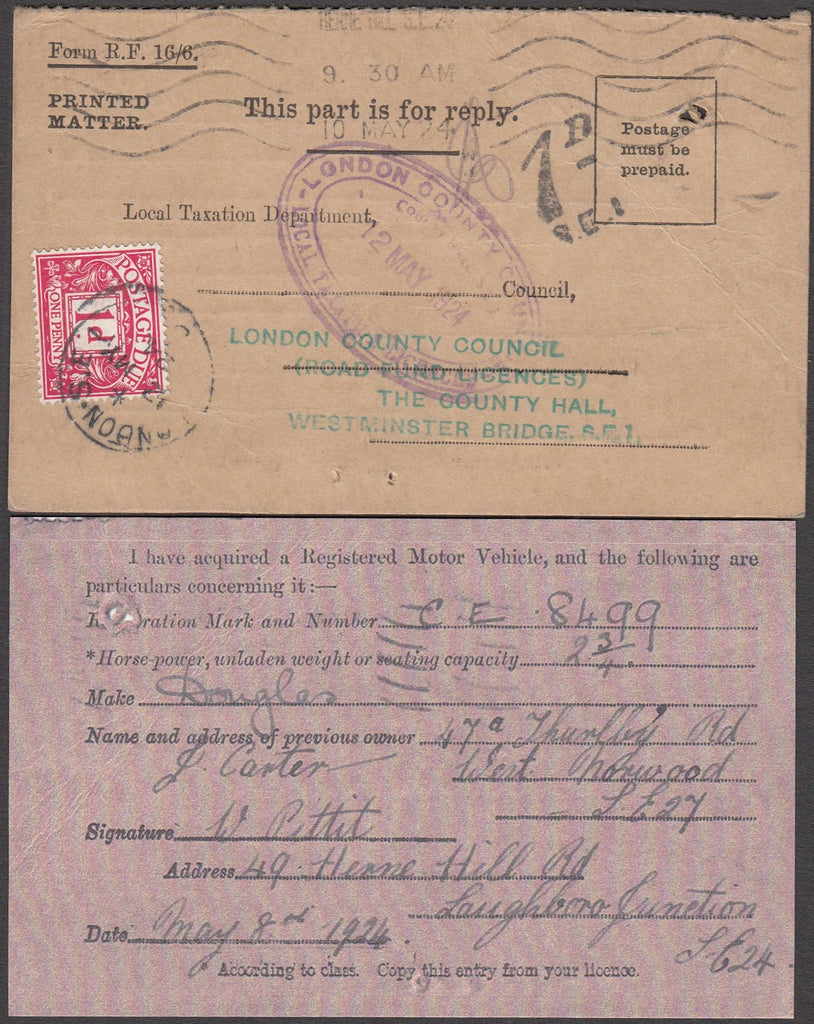 HERNE HILL S.E.24
Form R.F. 16/6.
9. 30 AM
PRINTED
MATTER.
This part is for reply.
10 MAY 24
Postage
must be
prepaid.
1D
S.E.1
LONDON COUNTY
12 MAY 1924
Local Taxation Department,
Council,
POSTAGE DUE
1d
ONE PENNY
LONDON. S.E.
LONDON COUNTY COUNCIL
(ROAD FUND LICENCES)
THE COUNTY HALL,
WESTMINSTER BRIDGE. S.E.1.
I have acquired a Registered Motor Vehicle, and the following are
particulars concerning it:—
ration Mark and Number C.E. 8499
*Horse-power, unladen weight or seating capacity 2 3/4.
Make Douglas
Name and address of previous owner 47a Thurlby Rd
J. Carter West Norwood
S.E27
Signature W Pittit
Address 49 Herne Hill Rd
Laughboro Junction
Date May 8th 1924.
S.E24
* According to class. Copy this entry from your licence.